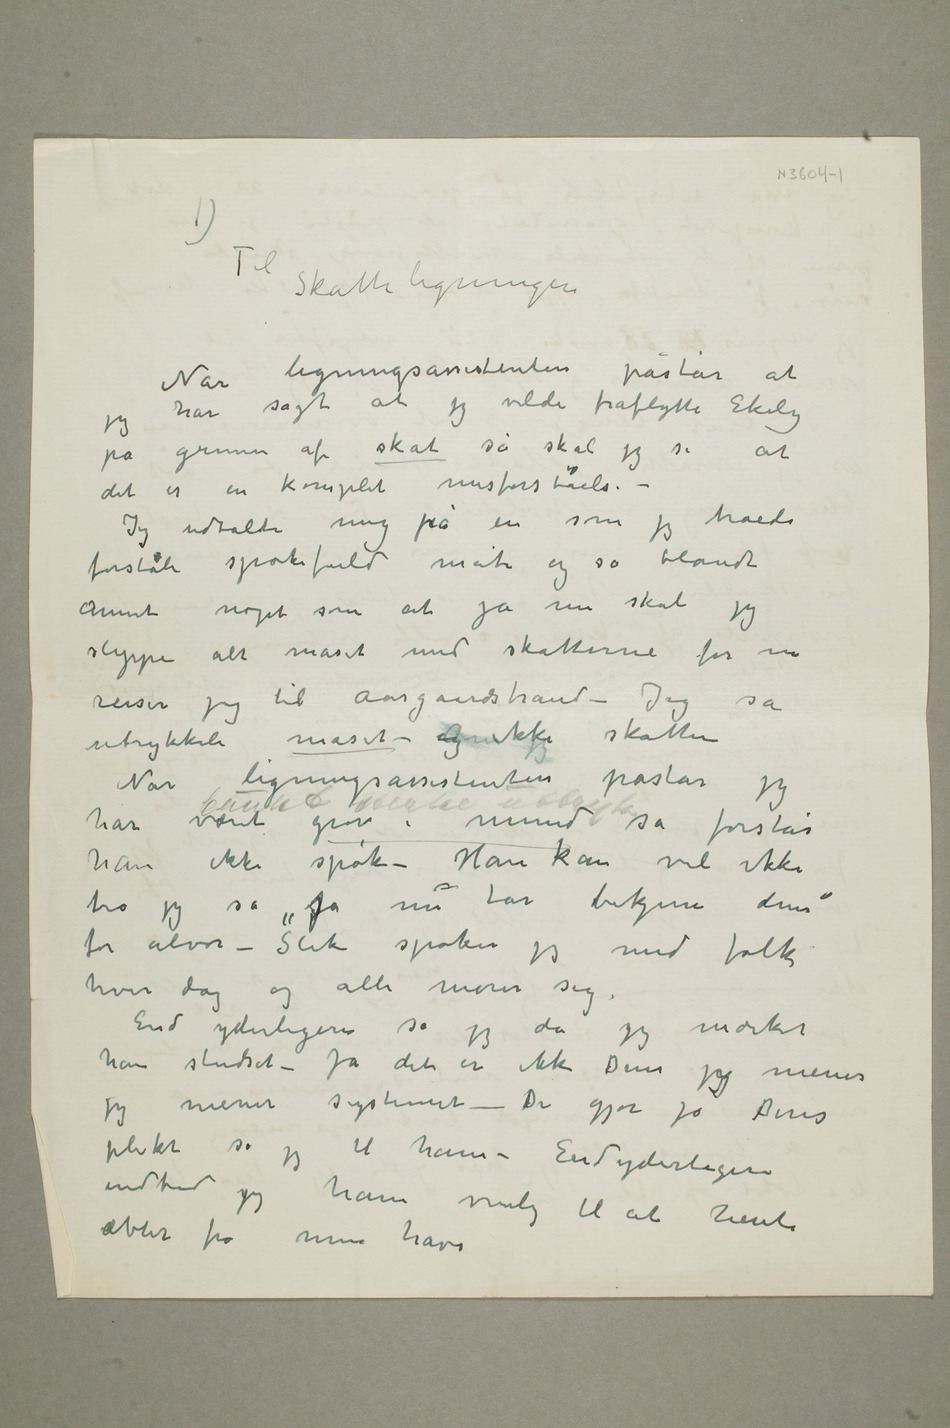 N3604-1
1)
Til
Skatteligningen
Når ligningsassistenten påstår at
jeg har sagt at jeg vilde fraflytte Ekely
på grunn af skat så skal jeg si at
det er en komplet misforståelse. –
Jeg udtalte mig på en som jeg troede
forståli spøkefuld måte og sa blandt
annet noget som at ja nu skal jeg
slippe alt maset med skatterne for nu
reiser jeg til Aasgaardstrand – Jeg sa
utrykkeli maset – og ikke skatten
Når ligningsassistenten påstår jeg
brukt sterke uttryk
har været grov i mund så forstår
han ikke spøk – Han kan vel ikke
tro jeg sa „Ja nu tar bekjene dem"
for alvor – Slik spøker jeg med folk
hver dag og alle morer sig.
End yderligere sa jeg da jeg mærket
han studset – Ja det er ikke Dem jeg mener
jeg mener systemet – De gjør jo Deres
plikt sa jeg til ham – End yderligere
indbød jeg ham venlig til at hente
æbler fra min have